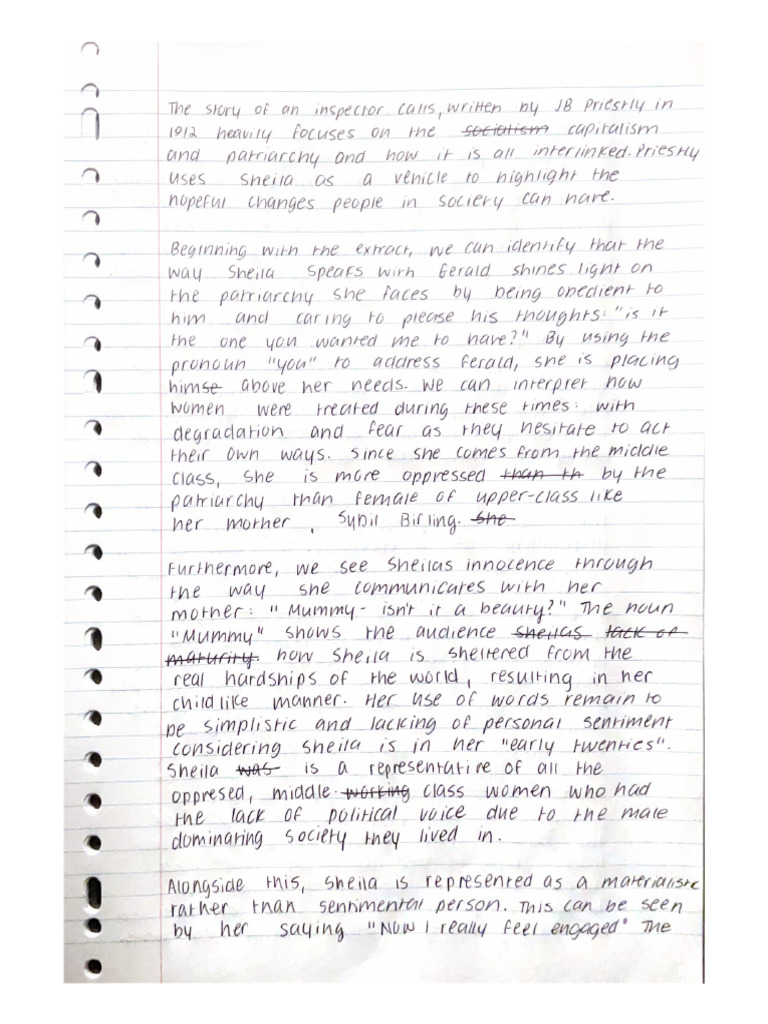 The story of an inspector calls, written by JB Priestly in
1912 heavily focuses on the socialism capitalism
and patriarchy and how it is all interlinked. Priestly
uses Sheila as a vehicle to highlight the
hopeful changes people in society can have.
Beginning with the extract, we can identify that the
way Sheila speaks with Gerald shines light on
the patriarchy she faces by being obedient to
him and caring to please his thoughts: "is it
the one you wanted me to have?" By using the
pronoun "you" to address Gerald, she is placing
himse above her needs. We can interpret how
women were treated during these times: with
degradation and fear as they hesitate to act
their own ways. Since she comes from the middle
class, she is more oppressed than th by the
patriarchy than female of upper-class like
her mother, Sybil Birling. She
Furthermore, we see Sheilas innocence through
the way she communicates with her
mother: "Mummy- isn't it a beauty?" The noun
"Mummy" shows the audience sheilas lack of
maturity. how Sheila is sheltered from the
real hardships of the world, resulting in her
childlike manner. Her use of words remain to
be simplistic and lacking of personal sentiment
considering Sheila is in her "early twenties".
Sheila was is a representative of all the
oppresed, middle working class women who had
the lack of political voice due to the male
dominating society they lived in.
Alongside this, Sheila is represented as a materialistc
rather than sentimental person. This can be seen
by her saying "Now I really feel engaged" The